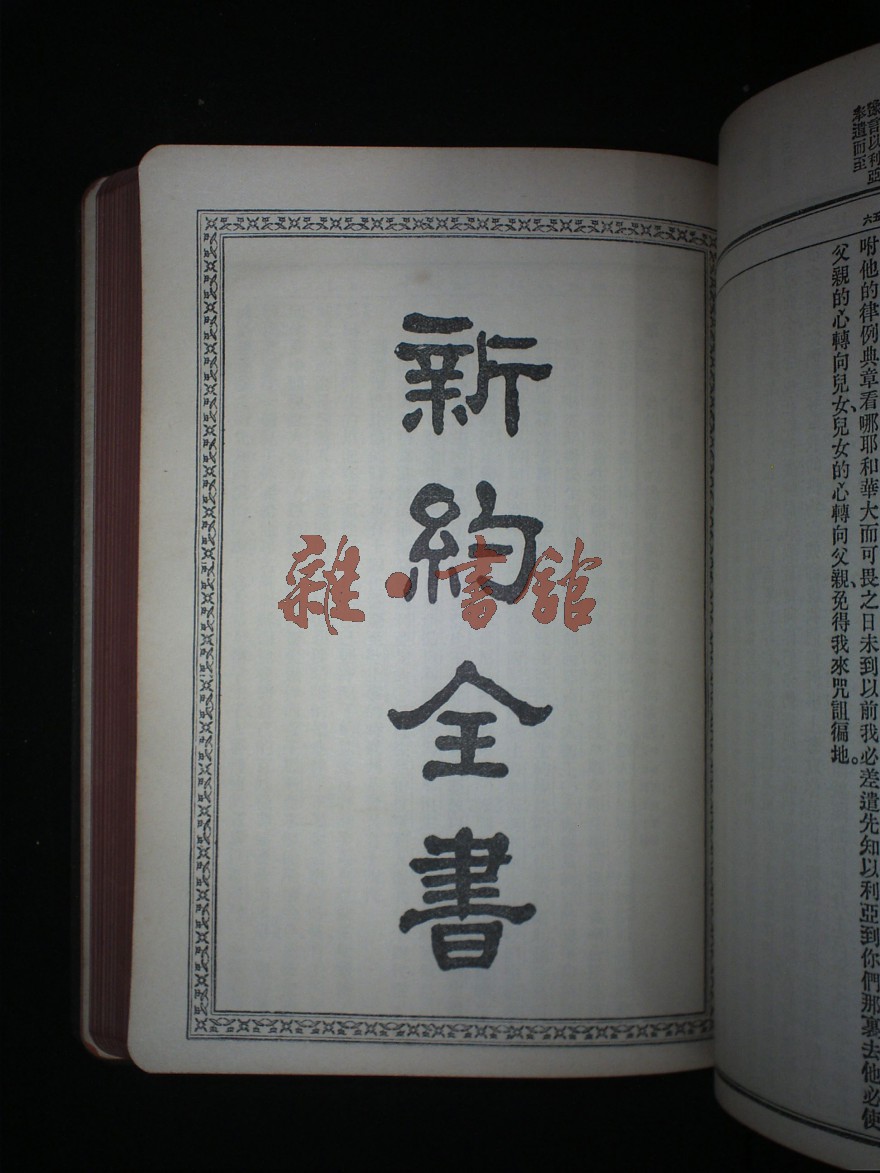 豫言以利亞
奉遣而至
五六
咐他的律例典章看哪耶和華大而可畏之日未到以前我必差遣先知以利亞到你們那裏去他必使
父親的心轉向兒女、兒女的心轉向父親、免得我來咒詛徧地。
新約全書
雜·書館